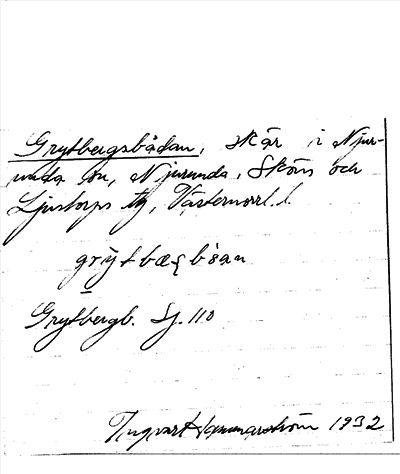 Grytbergsbådan, skär i Njur-
unda sn, Njurunda, Sköns och
Ljustorps tg, Västernorrl. l.
Grytbergb. Sj. 110
Ingvart Hammarström 1932